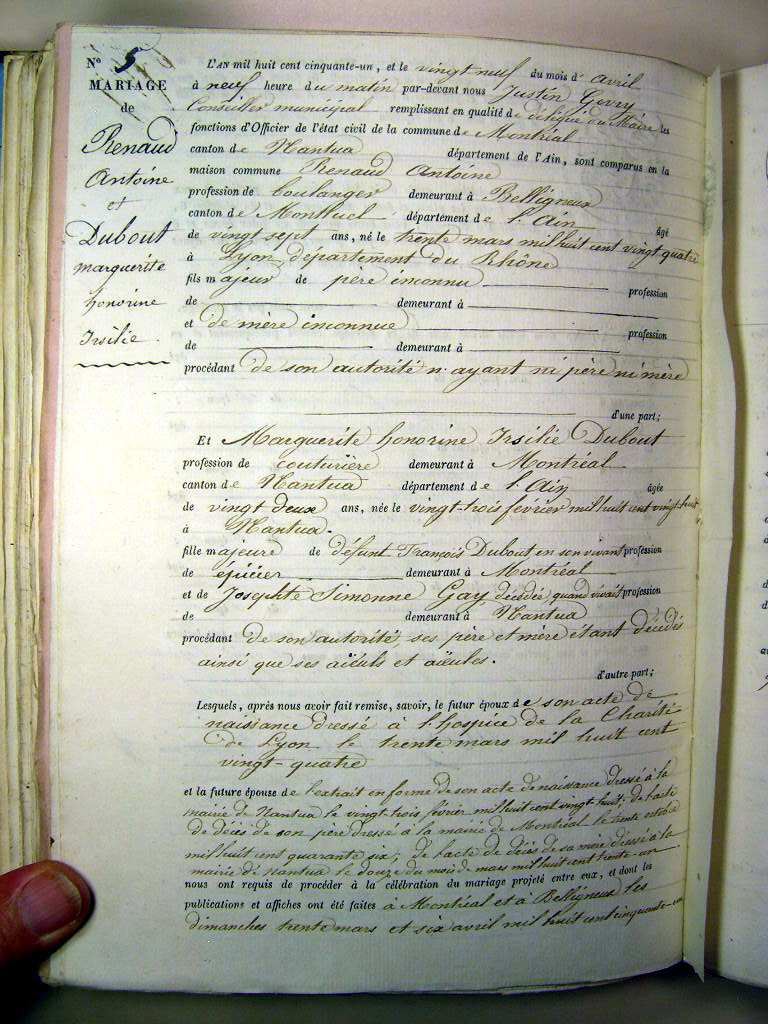 N° 5
MARIAGE
de
Renaud
Antoine
et
Dubout
marguerite
honorine
Irsilie.
L'AN mil huit cent cinquante-un, et le vingt neuf du mois d'avril
à neuf heure du matin par-devant nous Justin Gevry
Conseiller municipal remplissant en qualité de délégué du Maire les
fonctions d'Officier de l'état civil de la commune de Montréal
canton de Nantua département de l'Ain, sont comparus en la
maison commune Renaud Antoine
profession de boulanger demeurant à Belligneux
canton de Montluel département de l'Ain âgé
de vingt sept ans, né le trente mars mil huit cent vingt quatre
à Lyon, département du Rhône
fils majeur de père inconnu profession
de demeurant à
et de mère inconnue profession
de demeurant à
procédant de son autorité n'ayant ni père ni mère
d'une part;
Et Marguerite honorine Irsilie Dubout
profession de couturière demeurant à Montréal
canton de Nantua département de l'Ain âgée
de vingt deux ans, née le vingt-trois février mil huit cent vingt-huit
à Nantua.
fille majeure de défunt François Dubout en son vivant profession
de épicier demeurant à Montréal
et de Josephte Simonne Gay, décédée, quand vivait profession
de demeurant à Nantua
procédant de son autorité, ses père et mère étant décédés
ainsi que ses aïeuls et aïeules.
d'autre part;
Lesquels, après nous avoir fait remise, savoir, le futur époux de son acte de
naissance dressé à l'hospice de la Charité
de Lyon le trente mars mil huit cent
vingt-quatre
et la future épouse de l'extrait en forme de son acte de naissance dressé à la
mairie de Nantua le vingt-trois février mil huit cent vingt-huit; de l'acte
de décès de son père dressé à la mairie de Montréal le trente octobre
mil huit cent quarante six; de l'acte de décès de sa mère dressé à la
mairie de Nantua le douze du mois de mars mil huit cent trente-un
nous ont requis de procéder à la célébration du mariage projeté entre eux, et dont les
publications et affiches ont été faites à Montréal et à Belligneux les
dimanches trente mars et six avril mil huit cent cinquante-un